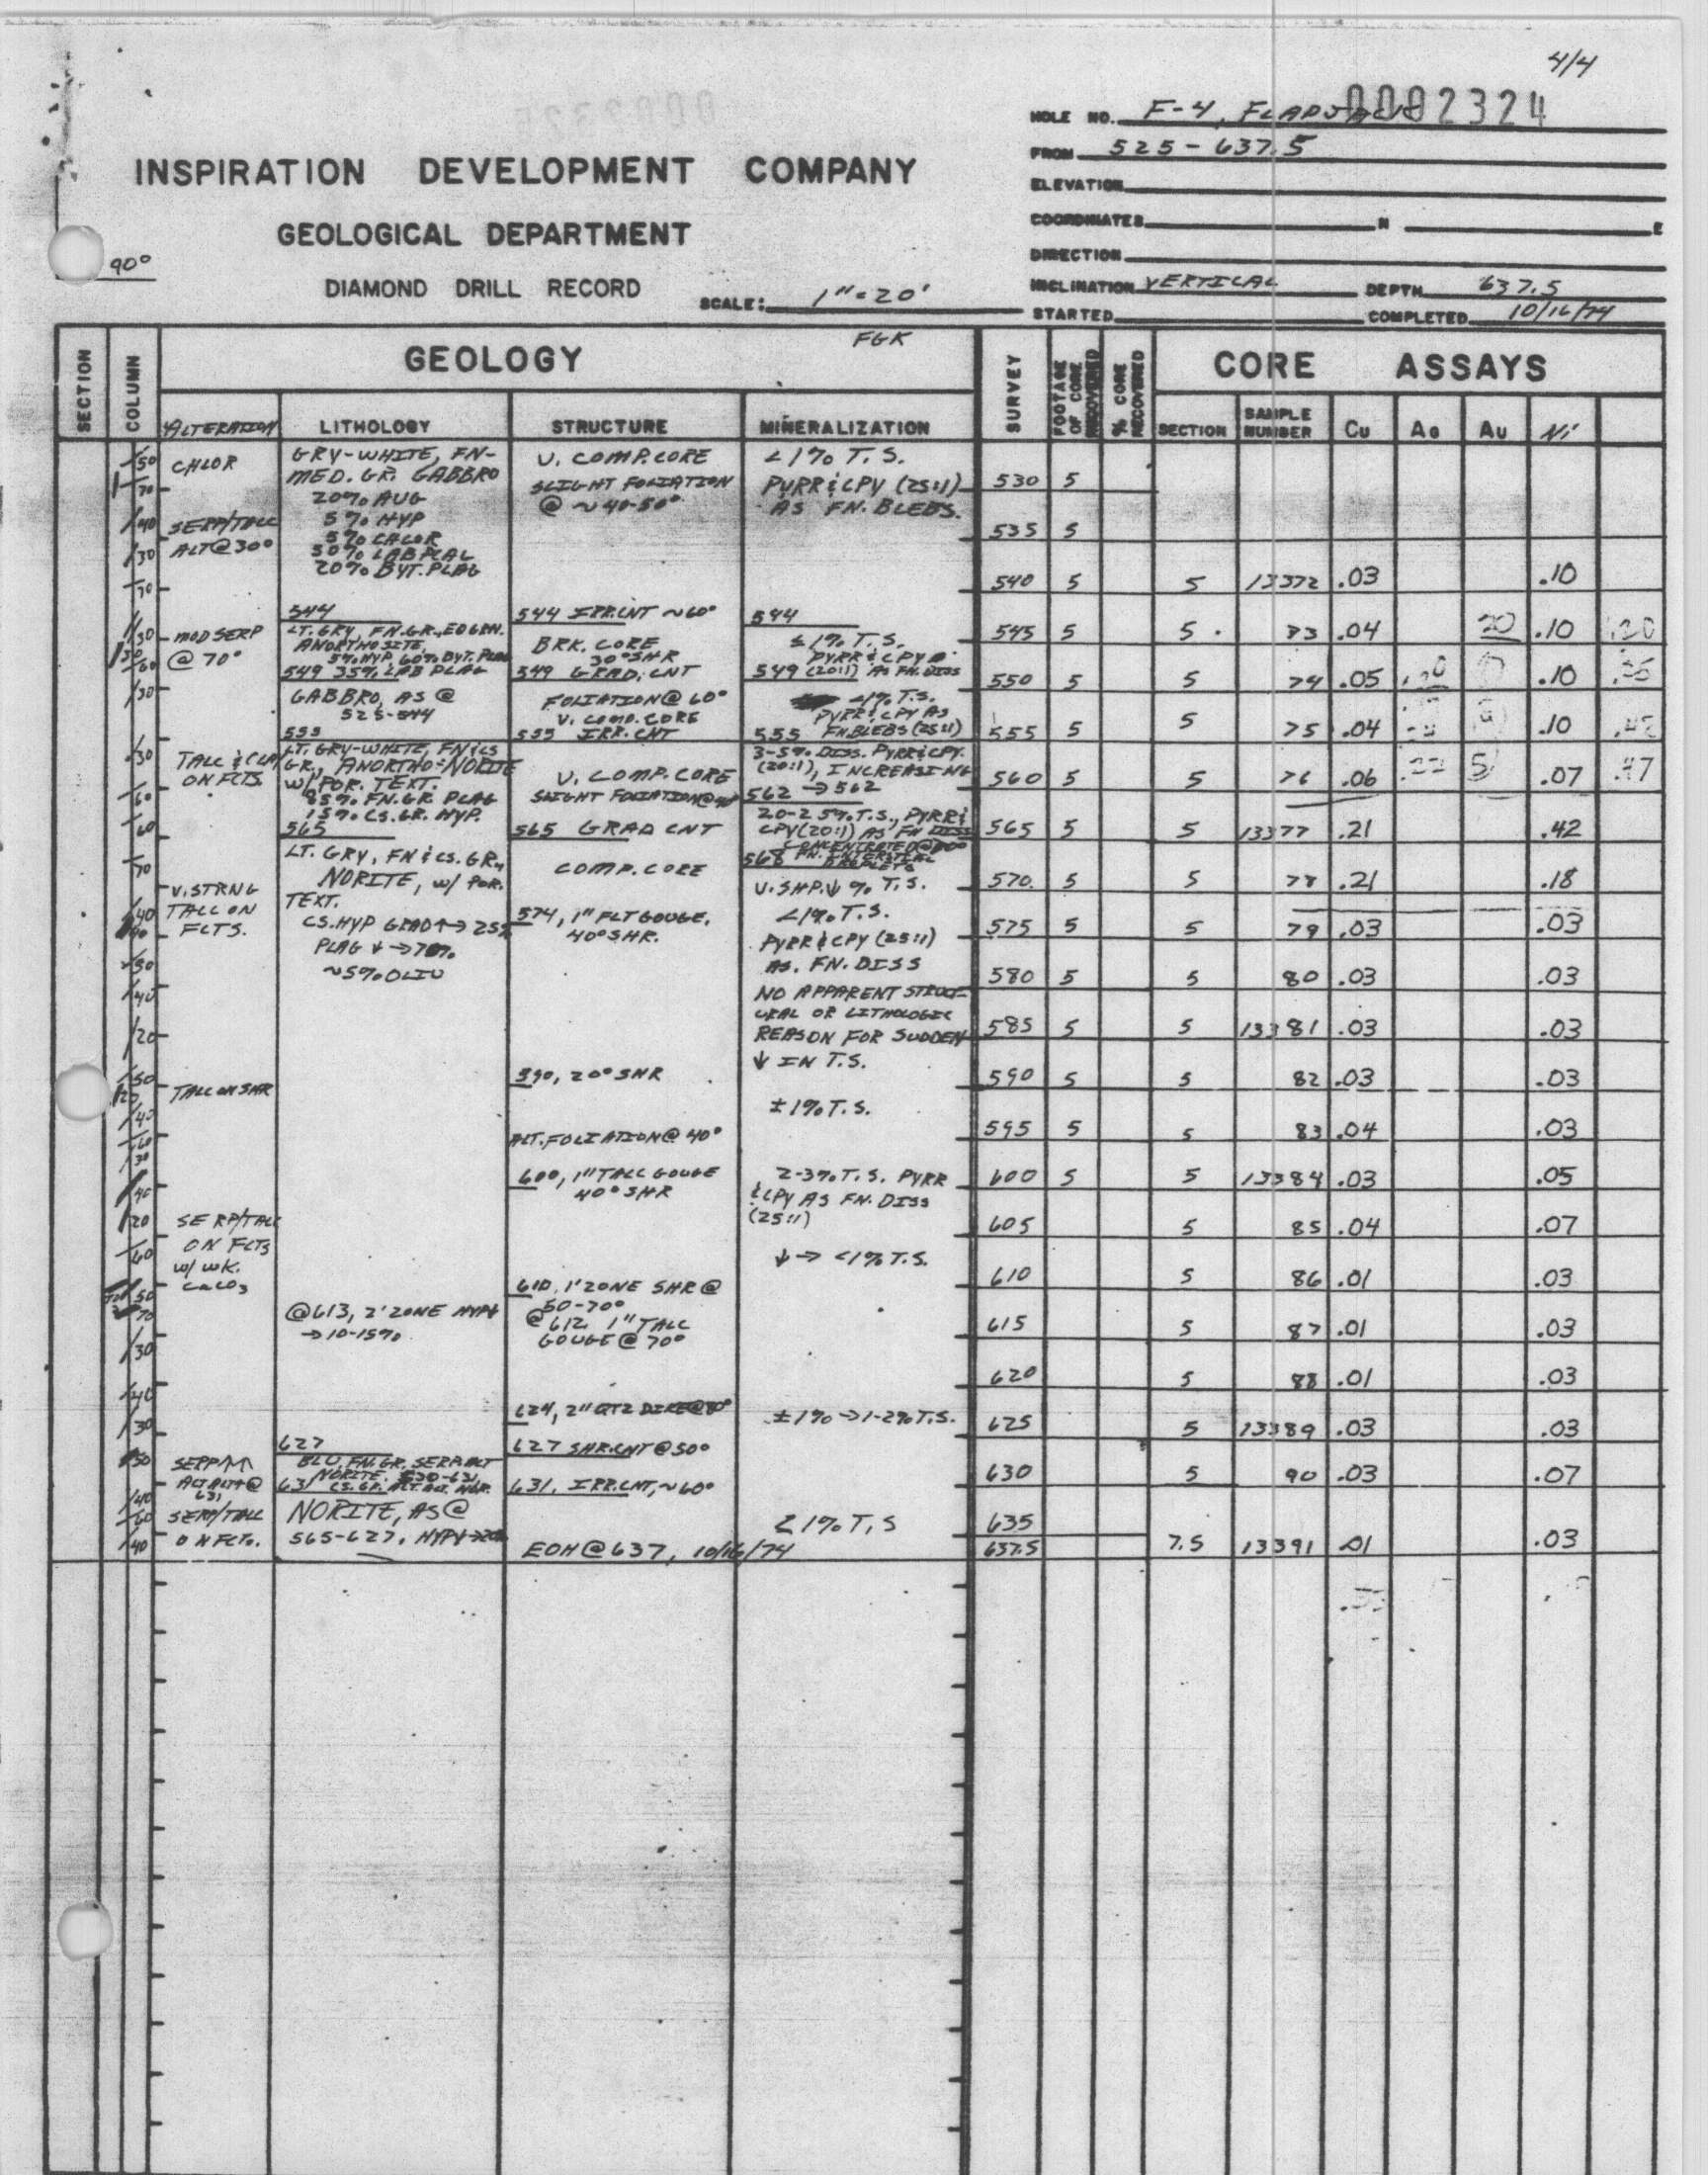 4/4
0002324
HOLE NO. F-4, FLAPJACK
FROM 525 - 637.5
INSPIRATION DEVELOPMENT COMPANY
ELEVATION
COORDINATES N E
GEOLOGICAL DEPARTMENT
DIRECTION
90°
DIAMOND DRILL RECORD
SCALE: 1"=20'
INCLINATION VERTICAL DEPTH 637.5
STARTED COMPLETED 10/16/74
SECTION
COLUMN
GEOLOGY
FGK
SURVEY
FOOTAGE OF CORE RECOVERED
% CORE RECOVERED
CORE ASSAYS
ALTERATION LITHOLOGY STRUCTURE MINERALIZATION
SECTION SAMPLE NUMBER Cu Ag Au Ni
CHLOR
SERP/TALC
ALT@30°
MOD SERP
@ 70°
TALC & CLAY
ON FCTS.
V. STRNG
TALC ON
FCTS.
TALC ON SHR
SERP/TALC
ON FCTS
W/ WK.
CaCO3
SERP↑↑
631
SERP/TALC
ON FCTS.
GRY-WHITE, FN-
MED. GR. GABBRO
20% AUG
5% HYP
5% CHLOR
50% LAB PLAG
20% BYT. PLAG
544
LT. GRY, FN. GR., EQ GRN.
ANORTHOSITE,
5% HYP, 60% BYT. PLAG
549 35% LAB PLAG
GABBRO, AS @
525-544
555
LT. GRY-WHITE, FN & CS
GR., ANORTHO-NORITE
W/ POR. TEXT.
85% FN. GR. PLAG
15% CS. GR. HYP.
565
LT. GRY, FN & CS. GR.,
NORITE, W/ POR.
TEXT.
CS. HYP GRAD↑→25%
PLAG ↓→70%
~5% OLIV
@613, 2' ZONE HYP↓
→10-15%
627
BLU, FN. GR. SERP. ALT
NORITE. 630-631
631
NORITE, AS @
565-627, HYP↓→20%
V. COMP. CORE
SLIGHT FOLIATION
@ ~40-50°
544 IRR. CNT ~60°
BRK. CORE
30° SHR
549 GRAD. CNT
FOLIATION @ 60°
V. COMP. CORE
555 IRR. CNT
V. COMP. CORE
SLIGHT FOLIATION @ 40°
565 GRAD CNT
COMP. CORE
574, 1" FLT GOUGE,
40° SHR.
590, 20° SHR
ALT. FOLIATION @ 40°
600, 1" TALC GOUGE
40° SHR
610, 1' ZONE SHR @
50-70°
@ 612 1" TALC
GOUGE @ 70°
624, 2" QTZ DIKE @ 80°
627 SHR. CNT @ 50°
631, IRR. CNT, ~60°
EOH @ 637, 10/16/74
<1% T.S.
PYRR & CPY (25:1)
AS FN. BLEBS.
544
≤1% T.S.
PYRR & CPY
549 (20:1) AS FN. DISS
<1% T.S.
PYRR & CPY AS
555 FN. BLEBS (25:1)
3-5% DISS. PYRR & CPY.
(20:1), INCREASING
562 →562
20-25% T.S., PYRR &
CPY (20:1) AS FN DISS
CONCENTRATED @
568 FN. INTERSTICAL
DROPLETS
V. SHP. ↓ % T.S.
<1% T.S.
PYRR & CPY (25:1)
AS. FN. DISS
NO APPARENT STRUCT-
URAL OR LITHOLOGIC
REASON FOR SUDDEN
↓ IN T.S.
±1% T.S.
2-3% T.S. PYRR
& CPY AS FN. DISS
(25:1)
↓→ <1% T.S.
±1%→1-2% T.S.
<1% T.S
530 5
535 5
540 5 5 13372 .03 .10
545 5 5 73 .04 20 .10 .20
550 5 5 74 .05 .10
555 5 5 75 .04 .10
560 5 5 76 .06 .07 .47
565 5 5 13377 .21 .42
570 5 5 78 .21 .18
575 5 5 79 .03 .03
580 5 5 80 .03 .03
585 5 5 13381 .03 .03
590 5 5 82 .03 .03
595 5 5 83 .04 .03
600 5 5 13384 .03 .05
605 5 85 .04 .07
610 5 86 .01 .03
615 5 87 .01 .03
620 5 88 .01 .03
625 5 13389 .03 .03
630 5 90 .03 .07
635
637.5 7.5 13391 .01 .03